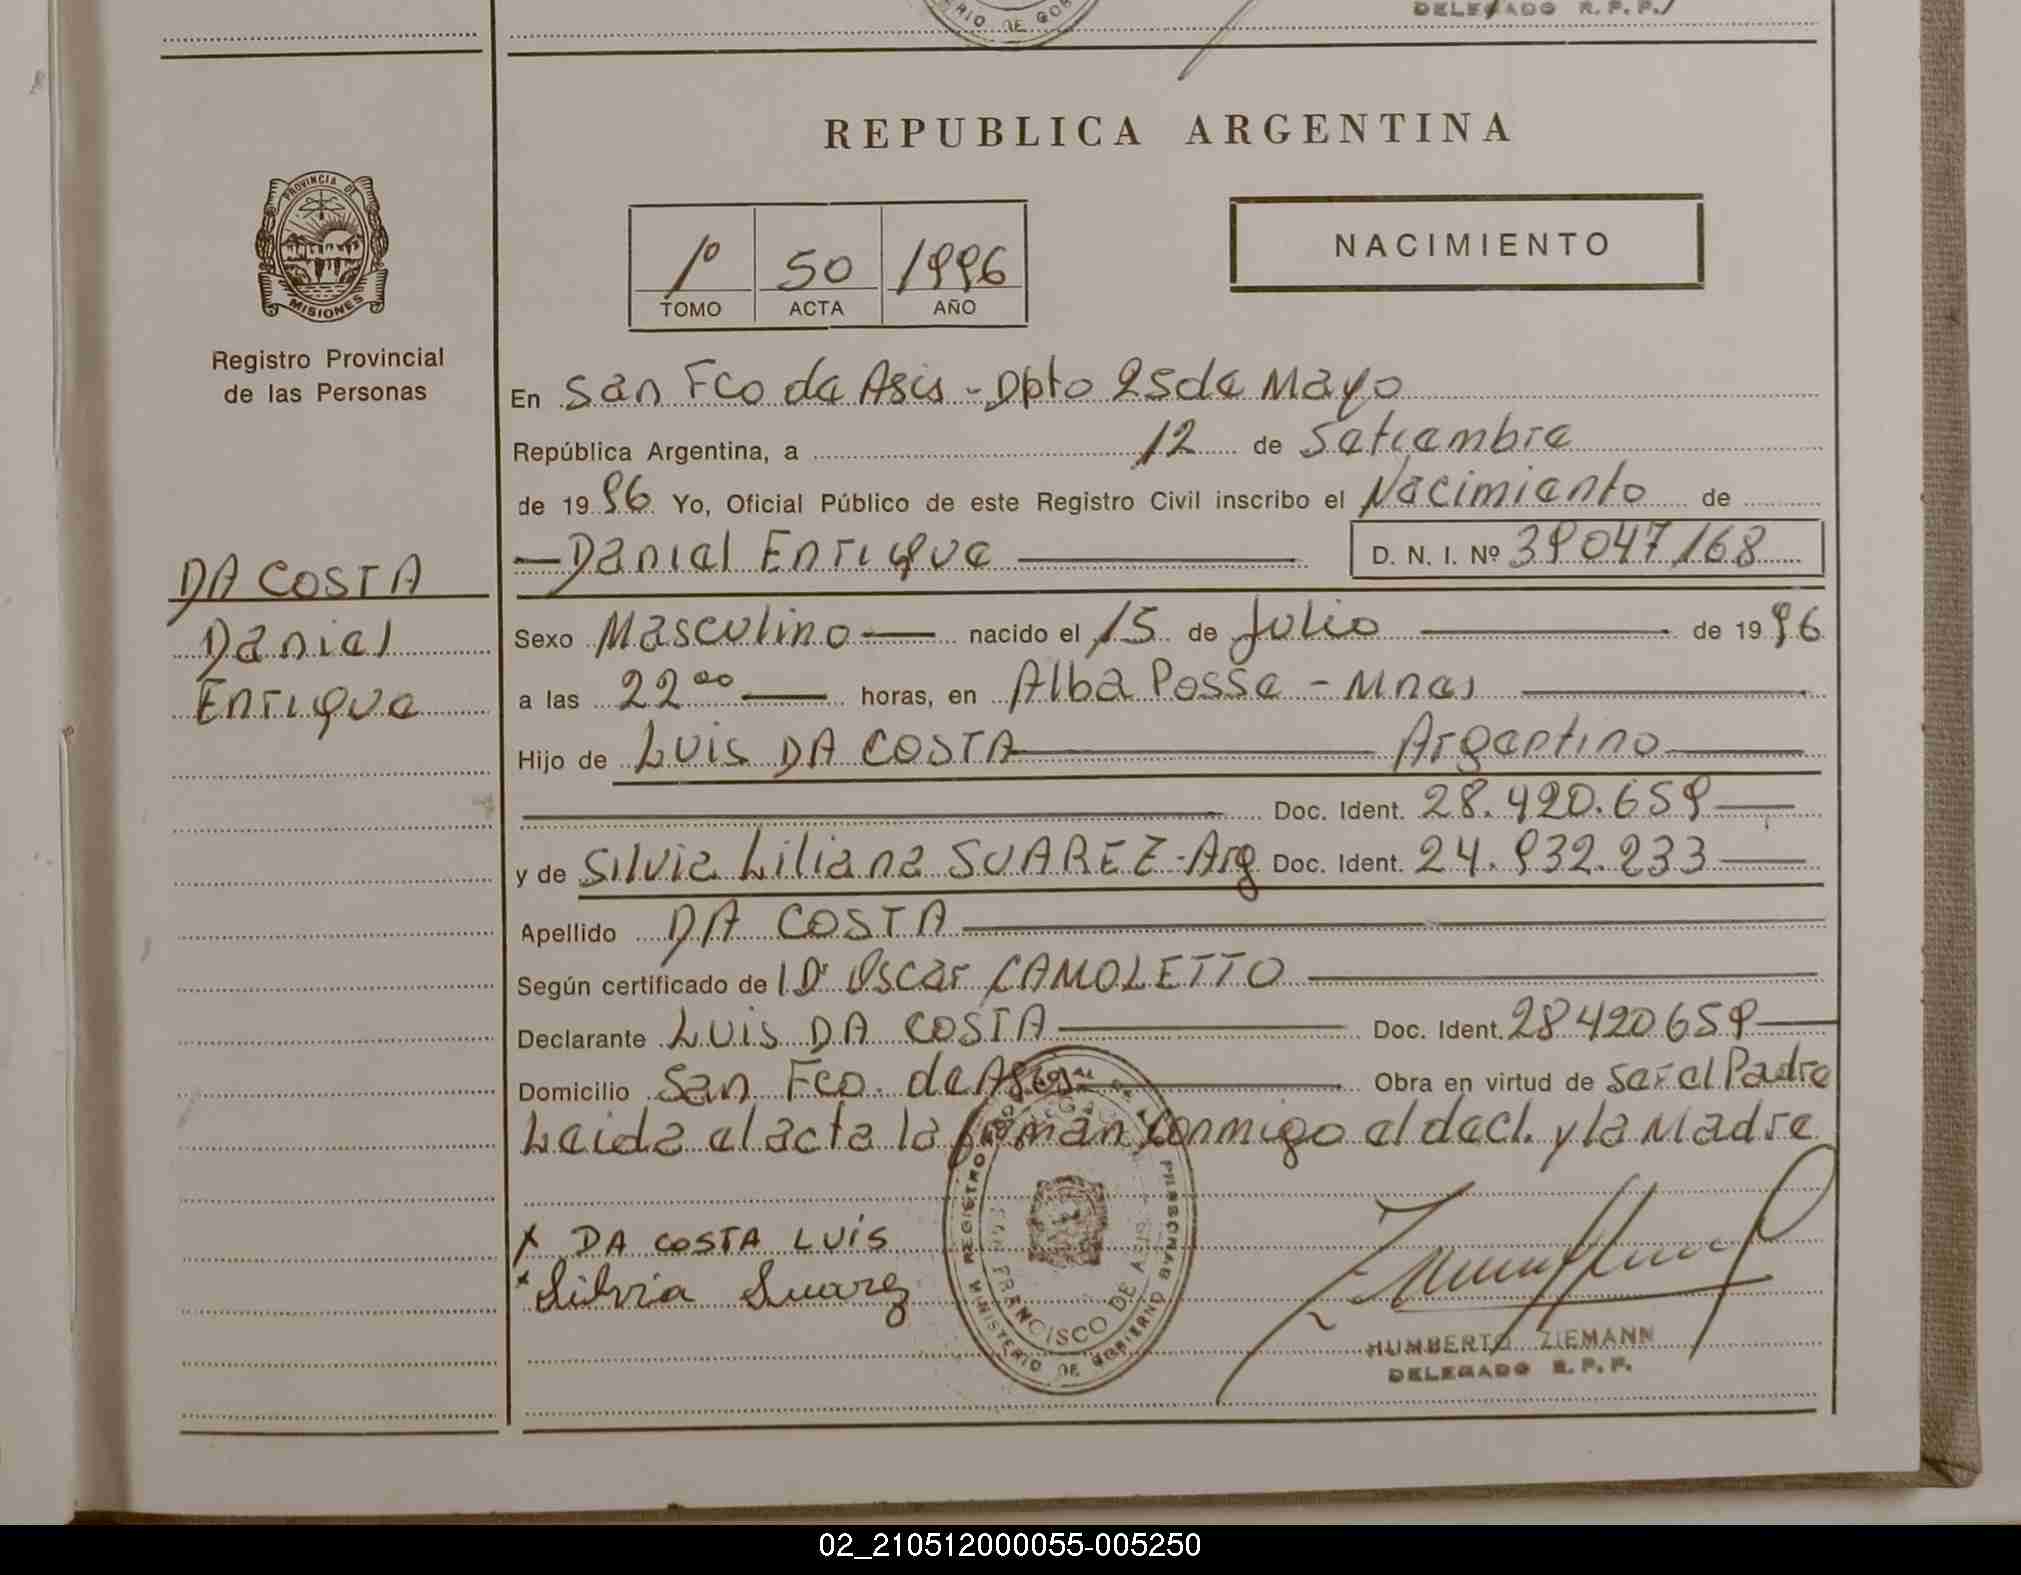 DELEGADO R. P. P.
RIO DE GOB
REPUBLICA ARGENTINA
PROVINCIA DE
MISIONES
Registro Provincial
de las Personas
1º 50 1996
TOMO ACTA AÑO
NACIMIENTO
En San Fco de Asis - Dpto 25 de Mayo
República Argentina, a 12 de Setiembre
de 1996 Yo, Oficial Público de este Registro Civil inscribo el Nacimiento de
Daniel Enrique D. N. I. Nº 39047168
DA COSTA
Daniel
Enrique
Sexo Masculino nacido el 15 de Julio de 1996
a las 22 00 horas, en Alba Posse - Mnes
Hijo de Luis DA COSTA Argentino
Doc. Ident. 28.420.659
y de Silvia Liliana SUAREZ - Arg Doc. Ident. 24.932.233
Apellido DA COSTA
Según certificado de l Dr Oscar CAMOLETTO
Declarante Luis DA COSTA Doc. Ident. 28420659
Domicilio San Fco. de Asis Obra en virtud de Ser el Padre
Leida el acta la firman conmigo el decl. y la Madre
X DA COSTA LUIS
x Silvia Suarez
REGISTRO PERSONAS
SAN FRANCISCO DE ASIS
MINISTERIO DE GOBIERNO
HUMBERTO ZIEMANN
DELEGADO R. P. P.
02_210512000055-005250